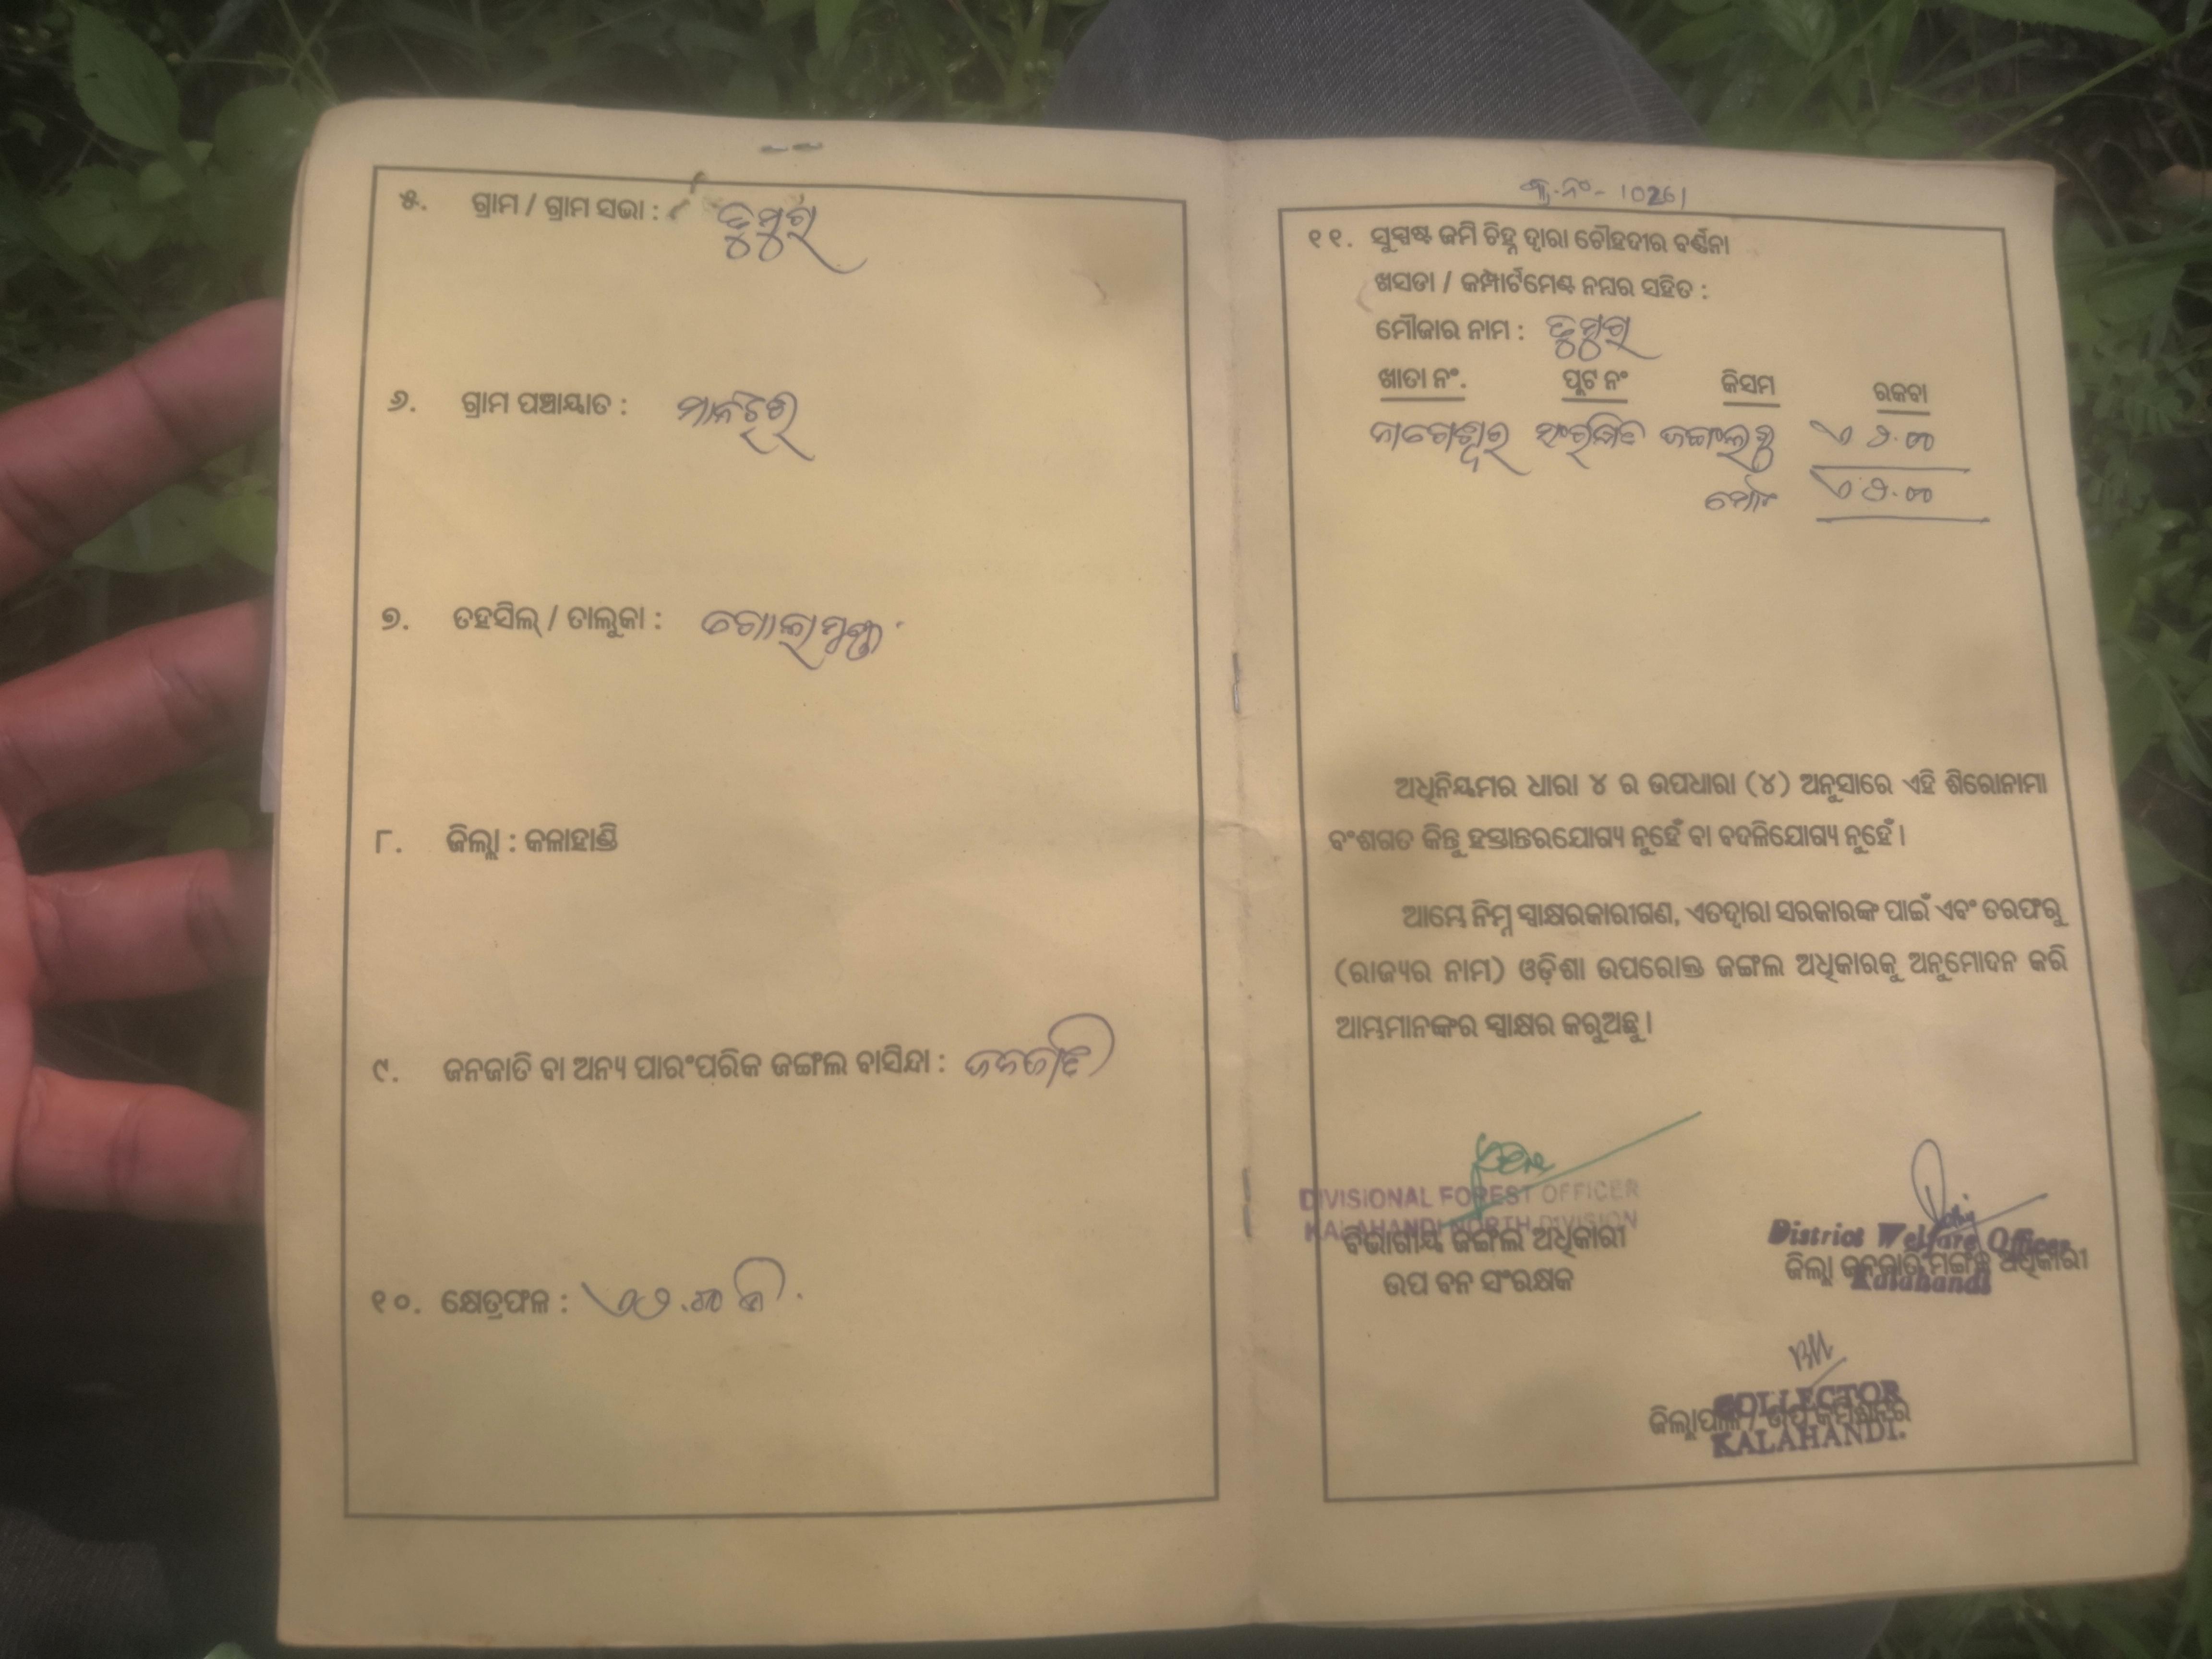 ୫. ଗ୍ରାମ / ଗ୍ରାମ ସଭା : ଡୁମୁର
୬. ଗ୍ରାମ ପଞ୍ଚାୟାତ :
୭. ତହସିଲ୍ / ତାଲୁକା : ଗୋଲାମୁଣ୍ଡା
୮. ଜିଲ୍ଲା : କଳାହାଣ୍ଡି
୯. ଜନଜାତି ବା ଅନ୍ୟ ପାରଂପରିକ ଜଙ୍ଗଲ ବାସିନ୍ଦା : ଜନଜାତି
୧୦. କ୍ଷେତ୍ରଫଳ :
କ୍ର.ନଂ- 10261
୧୧. ସୁସ୍ପଷ୍ଟ ଜମି ଚିହ୍ନ ଦ୍ୱାରା ଚୌହଦୀର ବର୍ଣ୍ଣନା
ଖସଡା / କମ୍ପାର୍ଟମେଣ୍ଟ ନମ୍ବର ସହିତ :
ମୌଜାର ନାମ : ଡୁମୁର
ଖାତା ନଂ. ପ୍ଲଟ ନଂ କିସମ ରକବା
ଅଧିନିୟମର ଧାରା ୪ ର ଉପଧାରା (୪) ଅନୁସାରେ ଏହି ଶିରୋନାମା
ବଂଶଗତ କିନ୍ତୁ ହସ୍ତାନ୍ତରଯୋଗ୍ୟ ନୁହେଁ ବା ବଦଳିଯୋଗ୍ୟ ନୁହେଁ ।
ଆମ୍ଭେ ନିମ୍ନ ସ୍ୱାକ୍ଷରକାରୀଗଣ, ଏତଦ୍ୱାରା ସରକାରଙ୍କ ପାଇଁ ଏବଂ ତରଫରୁ
(ରାଜ୍ୟର ନାମ) ଓଡ଼ିଶା ଉପରୋକ୍ତ ଜଙ୍ଗଲ ଅଧିକାରକୁ ଅନୁମୋଦନ କରି
ଆମ୍ଭମାନଙ୍କର ସ୍ୱାକ୍ଷର କରୁଅଛୁ ।
DIVISIONAL FOREST OFFICER
KALAHANDI NORTH DIVISION
ବିଭାଗୀୟ ଜଙ୍ଗଲ ଅଧିକାରୀ
ଉପ ବନ ସଂରକ୍ଷକ
District Welfare Officer
ଜିଲ୍ଲା ଜନଜାତି ମଙ୍ଗଳ ଅଧିକାରୀ
Kalahandi
COLLECTOR
ଜିଲ୍ଲାପାଳ / ଉପ କମିଶନର
KALAHANDI.